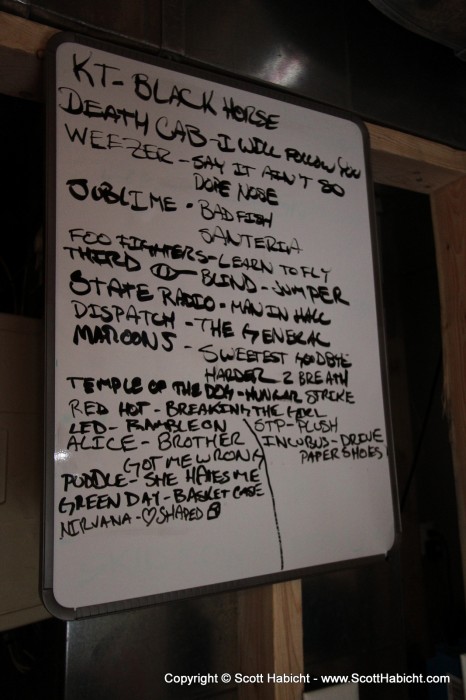 KT- BLACK HORSE
DEATH CAB - I WILL FOLLOW YOU
WEEZER - SAY IT AIN'T SO
DOPE NOSE
SUBLIME - BADFISH
SANTERIA
FOO FIGHTERS - LEARN TO FLY
THIRD BLIND - JUMPER
STATE RADIO - MAN IN HALL
DISPATCH - THE GENERAL
MAROON5 - SWEETEST GOODBYE
HARDER 2 BREATH
TEMPLE OF THE DOG - HUNGAR STRIKE
RED HOT - BREAKING THE GIRL
LED - RAMBLE ON
ALICE - BROTHER
GOT ME WRONG
PUDDLE - SHE HATES ME
GREEN DAY - BASKET CASE
NIRVANA - ♡ SHAPED
STP - PLUSH
INCUBUS - DRIVE
PAPER SHOES
Copyright © Scott Habicht - www.ScottHabicht.com